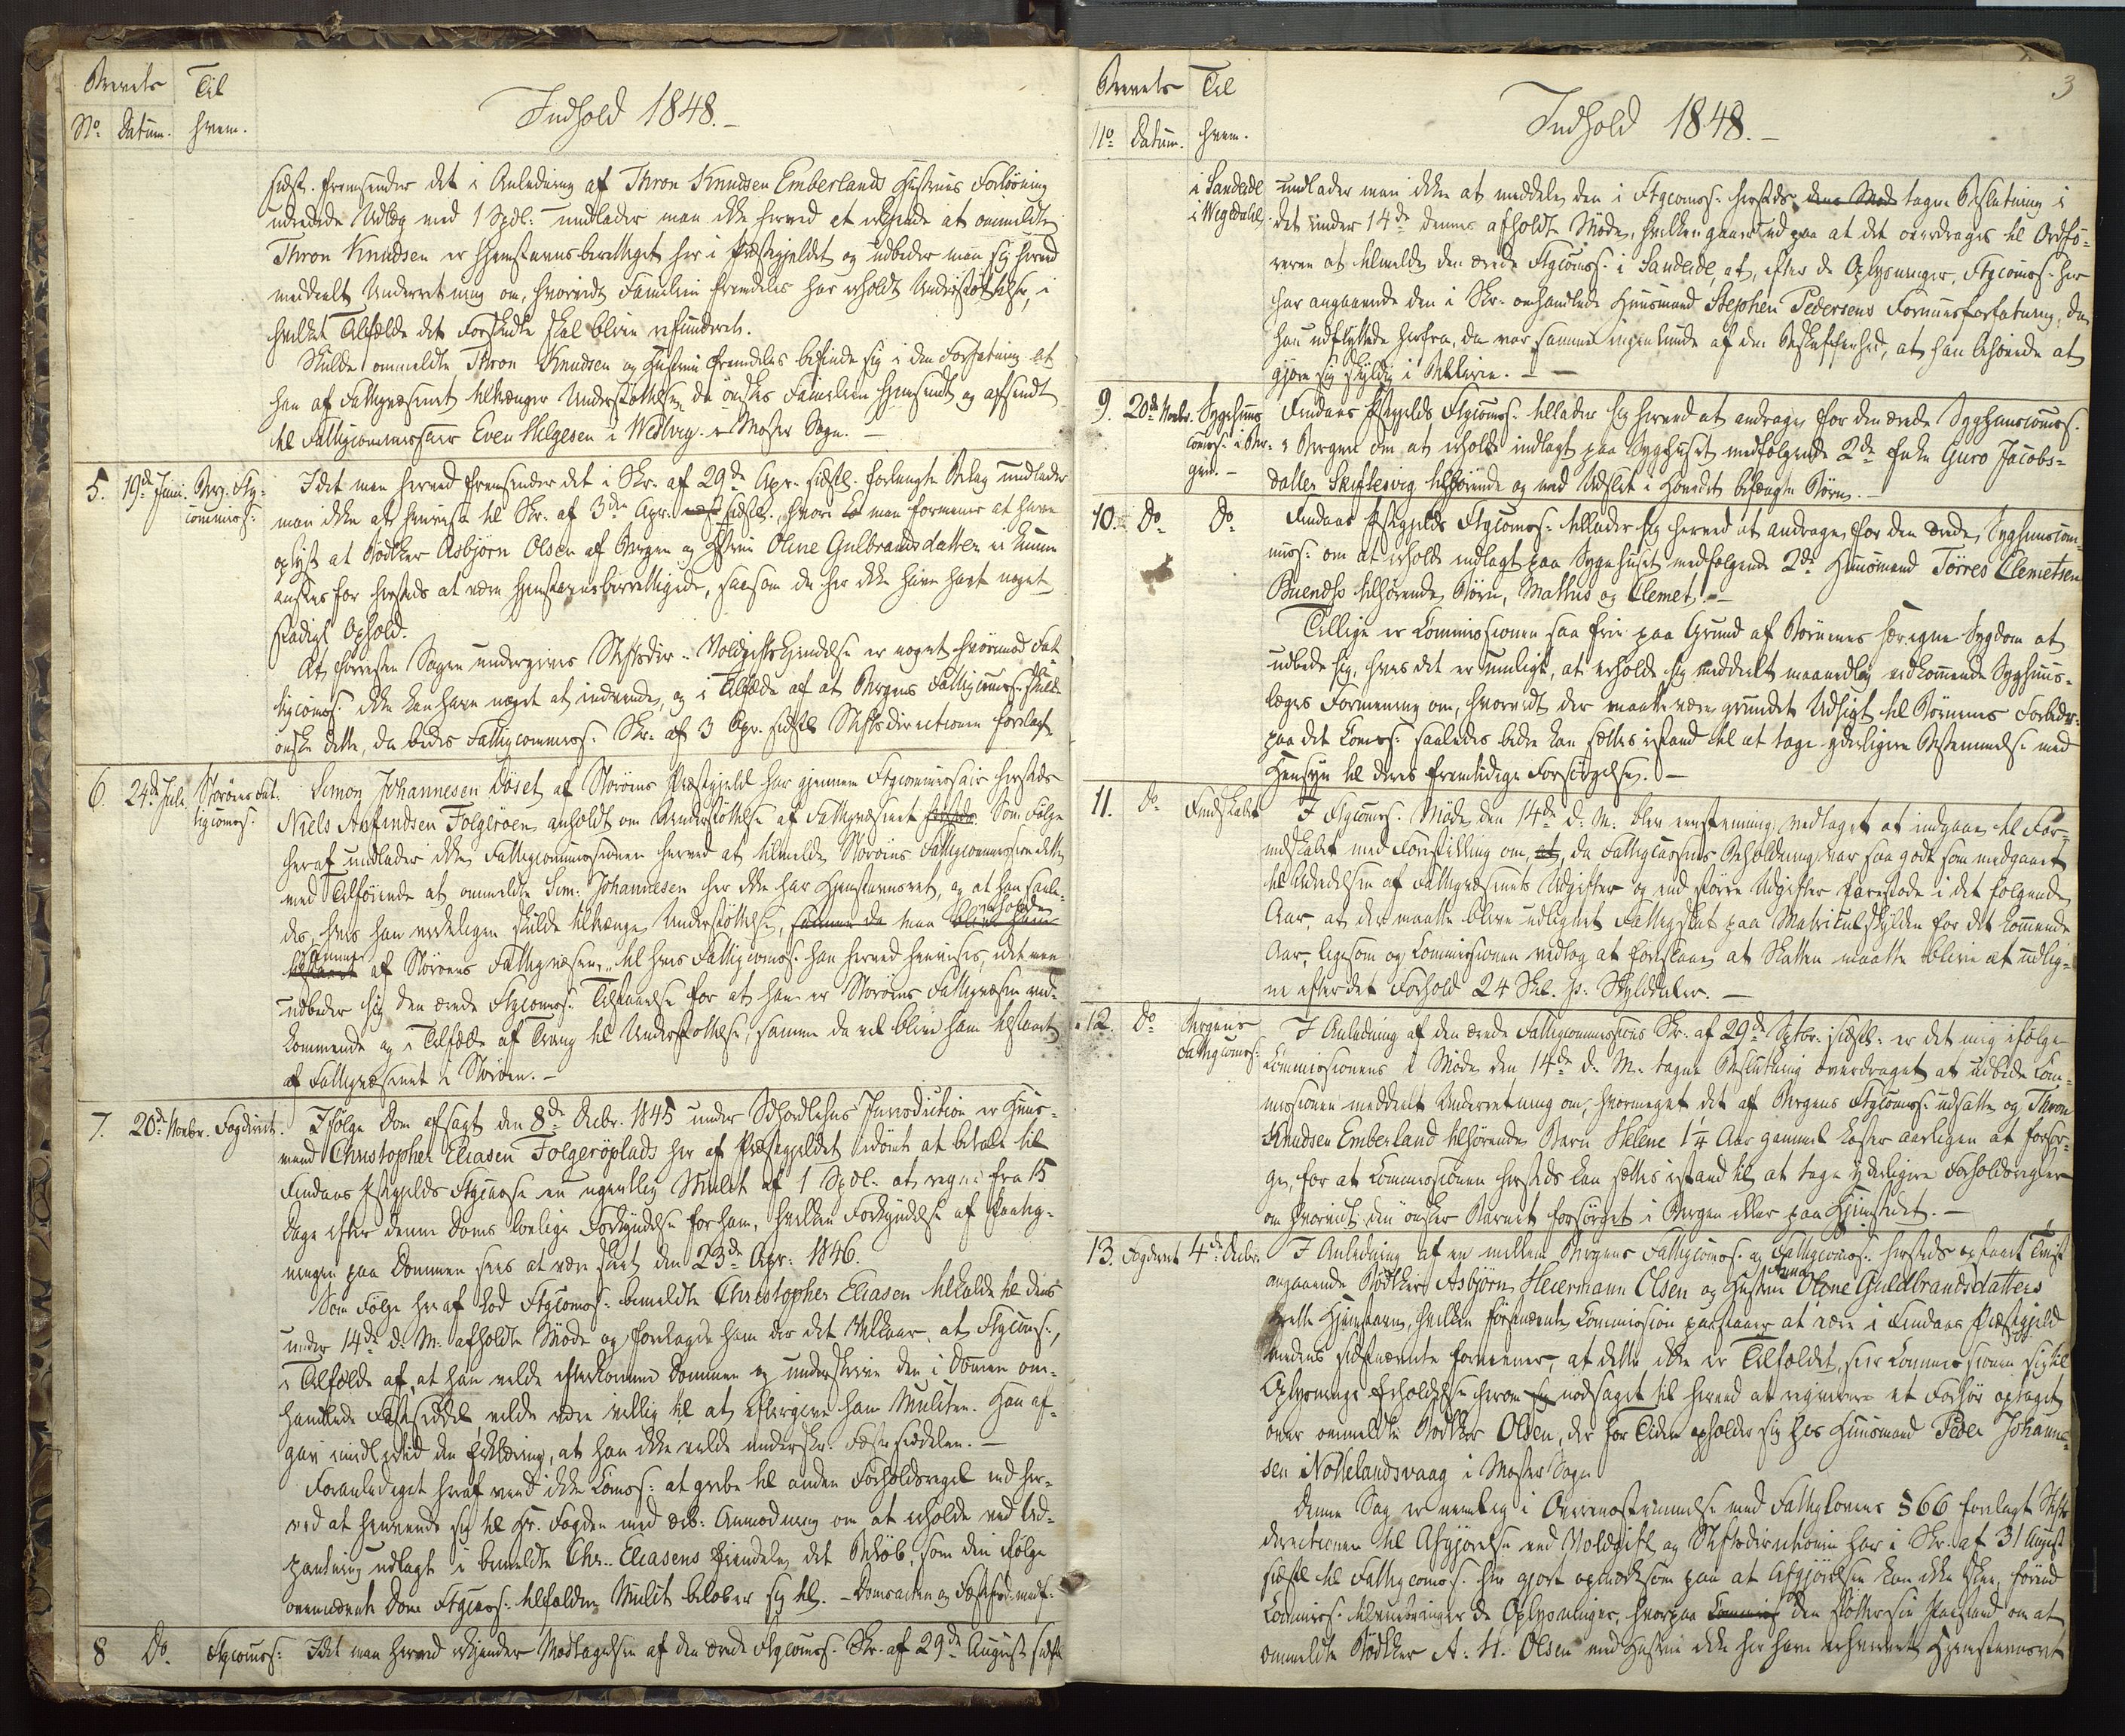 Brevets Til
No. Datum. hvem.
Indhold 1848.-
sidstl. fremsender det i Anledning af Thron Knudsen Emberlands Hustrues Forløsning
udredede Udlæg med 1 Spdl. undlader man ikke herved at erkjende at ommeldte
Thron Knudsen er Hjemstavnsberettiget her i Præstegjeldet og udbeder man sig herved
meddeelt Underretning om, hvorvidt Familien fremdeles har erholdt Understøttelse, i
hvilket Tilfælde det Forskudte skal blive refunderet.
Skulde ommeldte Thron Knudsen og Hustrue fremdeles befinde sig i den Forfatning at
han af Fattigvæsenet tiltrænger Understøttelse, da ønskes Familien hjemsendt og afsendt
til Fattigcommissair Even Helgesen i Wedvig i Moster Sogn. -
5. 19de Juni Berg. Ftg:
commiss:
Idet man herved fremsender det i Skr. af 29de Apr. sidstl. forlangte Bilag undlader
man ikke at henvise til Skr. af 3die Apr. sidstl., hvori man formener at have
oplyst at Bødtker Asbjørn Olsen af Bergen og Hustrue Oline Gulbrandsdatter ei kunne
ansees for hersteds at være hjemstavnsberettigede, saasom de her ikke have havt noget
stadigt Ophold.
At forresten Sagen undergives Stiftsdir.. Voldgifts Kjendelse er noget hvorimod Fat-
tigcomss. ikke kan have noget at indvende, og i Tilfælde af at Bergens Fattigcomss. skulde
ønske dette, da bedes Fattigcommiss. Skr. af 3 Apr. sidstl. Stiftsdirectionen forelagt.
6. 24de Juli Storøens Fat-
tigcomss.
Simon Johannesen Döset af Storøens Præstegjeld har gjennem Ftgcommissair hersteds
Niels Anfindsen Folgerøen anholdt om Understøttelse af Fattigvæsenet hersteds. Som Følge
heraf undlader ikke Fattigcommissionen herved at tilmelde Storøens Fattigcommission dette
med Tilføiende at ommeldte Sim. Johannesen her ikke har Hjemstavnsret, og at han saale-
des, hvis han virkeligen skulde tiltrænge Understøttelse, samme da maa blive ham
erholde
samme
tilstaaet af Storøens Fattigvæsen, til hvis Fattigcomss. han herved henvises, idet man
udbeder sig den ærede Ftgcomss. Tilstaaelse for at han er Storøens Fattigvæsen ved-
kommende og i Tilfælde af Trang til Understøttelse, samme da vil blive ham tilstaaet
af Fattigvæsenet i Storøen. -
7. 20de Novbr. Fogderiet.
Ifølge Dom afsagt den 8de Decbr. 1845 under Söhordlehns Jurisdiction er Huus-
mand Christopher Eliasen Folgeröplads her af Præstegjeldet idømt at betale til
Findaas Pstgjelds Ftgcasse en ugentlig Mulct af 1 Spdl. at regne fra 15
Dage efter denne Doms lovlige Forkyndelse for ham, hvilken Forkyndelse af Paateg-
ningen paa Dommen sees at være skeet den 23de Apr. 1846.
Som Følge heraf lod Ftgcomss. bemeldte Christopher Eliasen tilkalde til dens
under 14de d. M. afholdte Møde og forelagde ham der det Vilkaar, at Ftgcomss.,
i Tilfælde af, at han vilde efterkomme Dommen og underskrive den i Dommen om-
handlede Fæsteseddel vilde være villig til at eftergive ham Mulcten. Han af-
gav imidlertid den Erklæring, at han ikke vilde underskr. Fæstesedelen. -
Foranlediget heraf veed ikke Comss. at gribe til anden Forholdsregel end her-
ved at henvende sig til Hr. Fogden med ærb. Anmodning om at erholde ved Ud-
pantning udlagt i bemeldte Chr. Eliasens Eiendele, det Beløb, som den ifølge
ovennævnte Dom Ftgcass. tilfaldne Mulct beløber sig til. - Domsacten og Fæstesed. medf.
8 Do. Ftgcomss:
Idet man herved erkjender Modtagelsen af den ærede Ftgcomss. Skr. af 29de August sidstl.
3
Brevets Til
No. Datum. hvem.
Indhold 1848.-
i Sandeide
i Wegsdahl.
undlader man ikke at meddele den i Ftgcomss. hersteds dens Møde tagne Beslutning i
det under 14de dennes afholdt Møde, hvilken gaaer ud paa at det overdrages til Ordfø-
reren at tilmelde den ærede Ftgcomss. i Sandeide, at, efter de Oplysninger, Ftgcomss. her
har angaaende den i Skr. omhandlede Huusmand Stephen Pedersens Formuesforfatning, da
han udflyttede herfra, da var samme ingenlunde af den Beskaffenhed, at han behøvede at
gjøre sig skyldig i Betlerie. - -
9. 20de Novbr. Sygehuus
Comss. i Ber-
gen. -
Findaas Pstgjelds Ftgcomss. tillader sig herved at andrage for den ærede Sygehuuscomss.
i Bergen om at erholde indlagt paa Sygehuset medfølgende 2de Enke Guro Jacobs-
datter Skiftesvig tilhørende og med Udslet i Hovedet befængte Børn. -
10. Do. Do.
Findaas Pstgjelds Ftgcomss. tillader sig herved at andrage for den ærede Sygehuuscom-
miss. om at erholde indlagt paa Sygehuset medfølgende 2de Huusmand Törres Clemetsen
Buenæss tilhørende Børn, Mathis og Clemet. -
Tillige er Commissionen saa frie paa Grund af Børnenes særegne Sygdom at
udbede sig, hvis det er muligt, at erholde sig meddeelt maanedlig vedkommende Sygehuus-
læges Formening om, hvorvidt der maatte være grundet Udsigt til Børnenes Forbedr.
paa det Comss. saaledes bedre kan sættes istand til at tage yderligere Bestemmelse med
Hensyn til deres fremtidige Forsørgelse. -
11. Do. Formdskabet
I Ftgcomss. Møde den 14de d. M. blev eenstemmig vedtaget at indgaae til For-
mdskabet med Forestilling om, at, da Fattigcassens Beholdning var saa godt som medgaaet
til Udredelsen af Fattigvæsenets Udgifter og end større Udgifter forestode i det følgende
Aar, at der maatte blive udlignet Fattigskat paa Matriculskylden for det kommende
Aar, ligesom og Commissionen vedtog at foreslaae, at Skatten maatte blive at udlig-
ne efter det Forhold 24 Skl. pr. Skylddaler. -
12. Do. Bergens
Fattigcomss:
I Anledning af den ærede Fattigcommissions Skr. af 29de Septbr. sidstl. er det mig ifølge
Commissionens i Møde den 14de d. M. tagne Beslutning overdraget at udbede Com-
missionen meddeelt Underretning om, hvormeget det af Bergens Ftgcomss. udsatte og Thron
Knudsen Emberland tilhørende Barn Helene 1 1/4 Aar gammel koster aarligen at forsør-
ge, for at Commissionen hersteds kan sættes istand til at tage yderligere Forholdsregler
om hvorvidt den ønsker Barnet forsørget i Bergen eller paa Hjemstedet. -
13. Fogderiet 4de Decbr.
I Anledning af en mellem Bergens Fattigcomss. og Fattigcomss. hersteds opstaaet Tvist
angaaende Bødtker Asbjørn Heiermann Olsen og Hustrue Anna Oline Guldbrandsdatters
rette Hjemstavn, hvilken førstnævnte Commission paastaaer at være i Findaas Præstegjeld
medens sidstnævnte formener, at dette ikke er Tilfældet, seer Commissionen sig til
Oplysnings Erholdelse herom sig nødsaget til herved at reqvirere et Forhør optaget
over ommeldte Bødtker Olsen, der for Tiden opholder sig hos Huusmand Peder Johanne-
sen i Nottelandsvaag i Moster Sogn
Denne Sag er nemlig i Overeensstemmelse med Fattiglovens § 66 forelagt Stifts-
directionen til Afgjørelse ved Voldgift og Stiftsdirectionen har i Skr. af 31 August
sidstl. til Fattigcomss. her gjort opmærksom paa at Afgjørelsen kan ikke skee, førend
Commiss. tilveiebringer de Oplysninger, hvorpaa Commiss den støtter sin Paastand om at
ommeldte Bødtker A. H. Olsen med Hustrue ikke her have erhvervet Hjemstavnsret